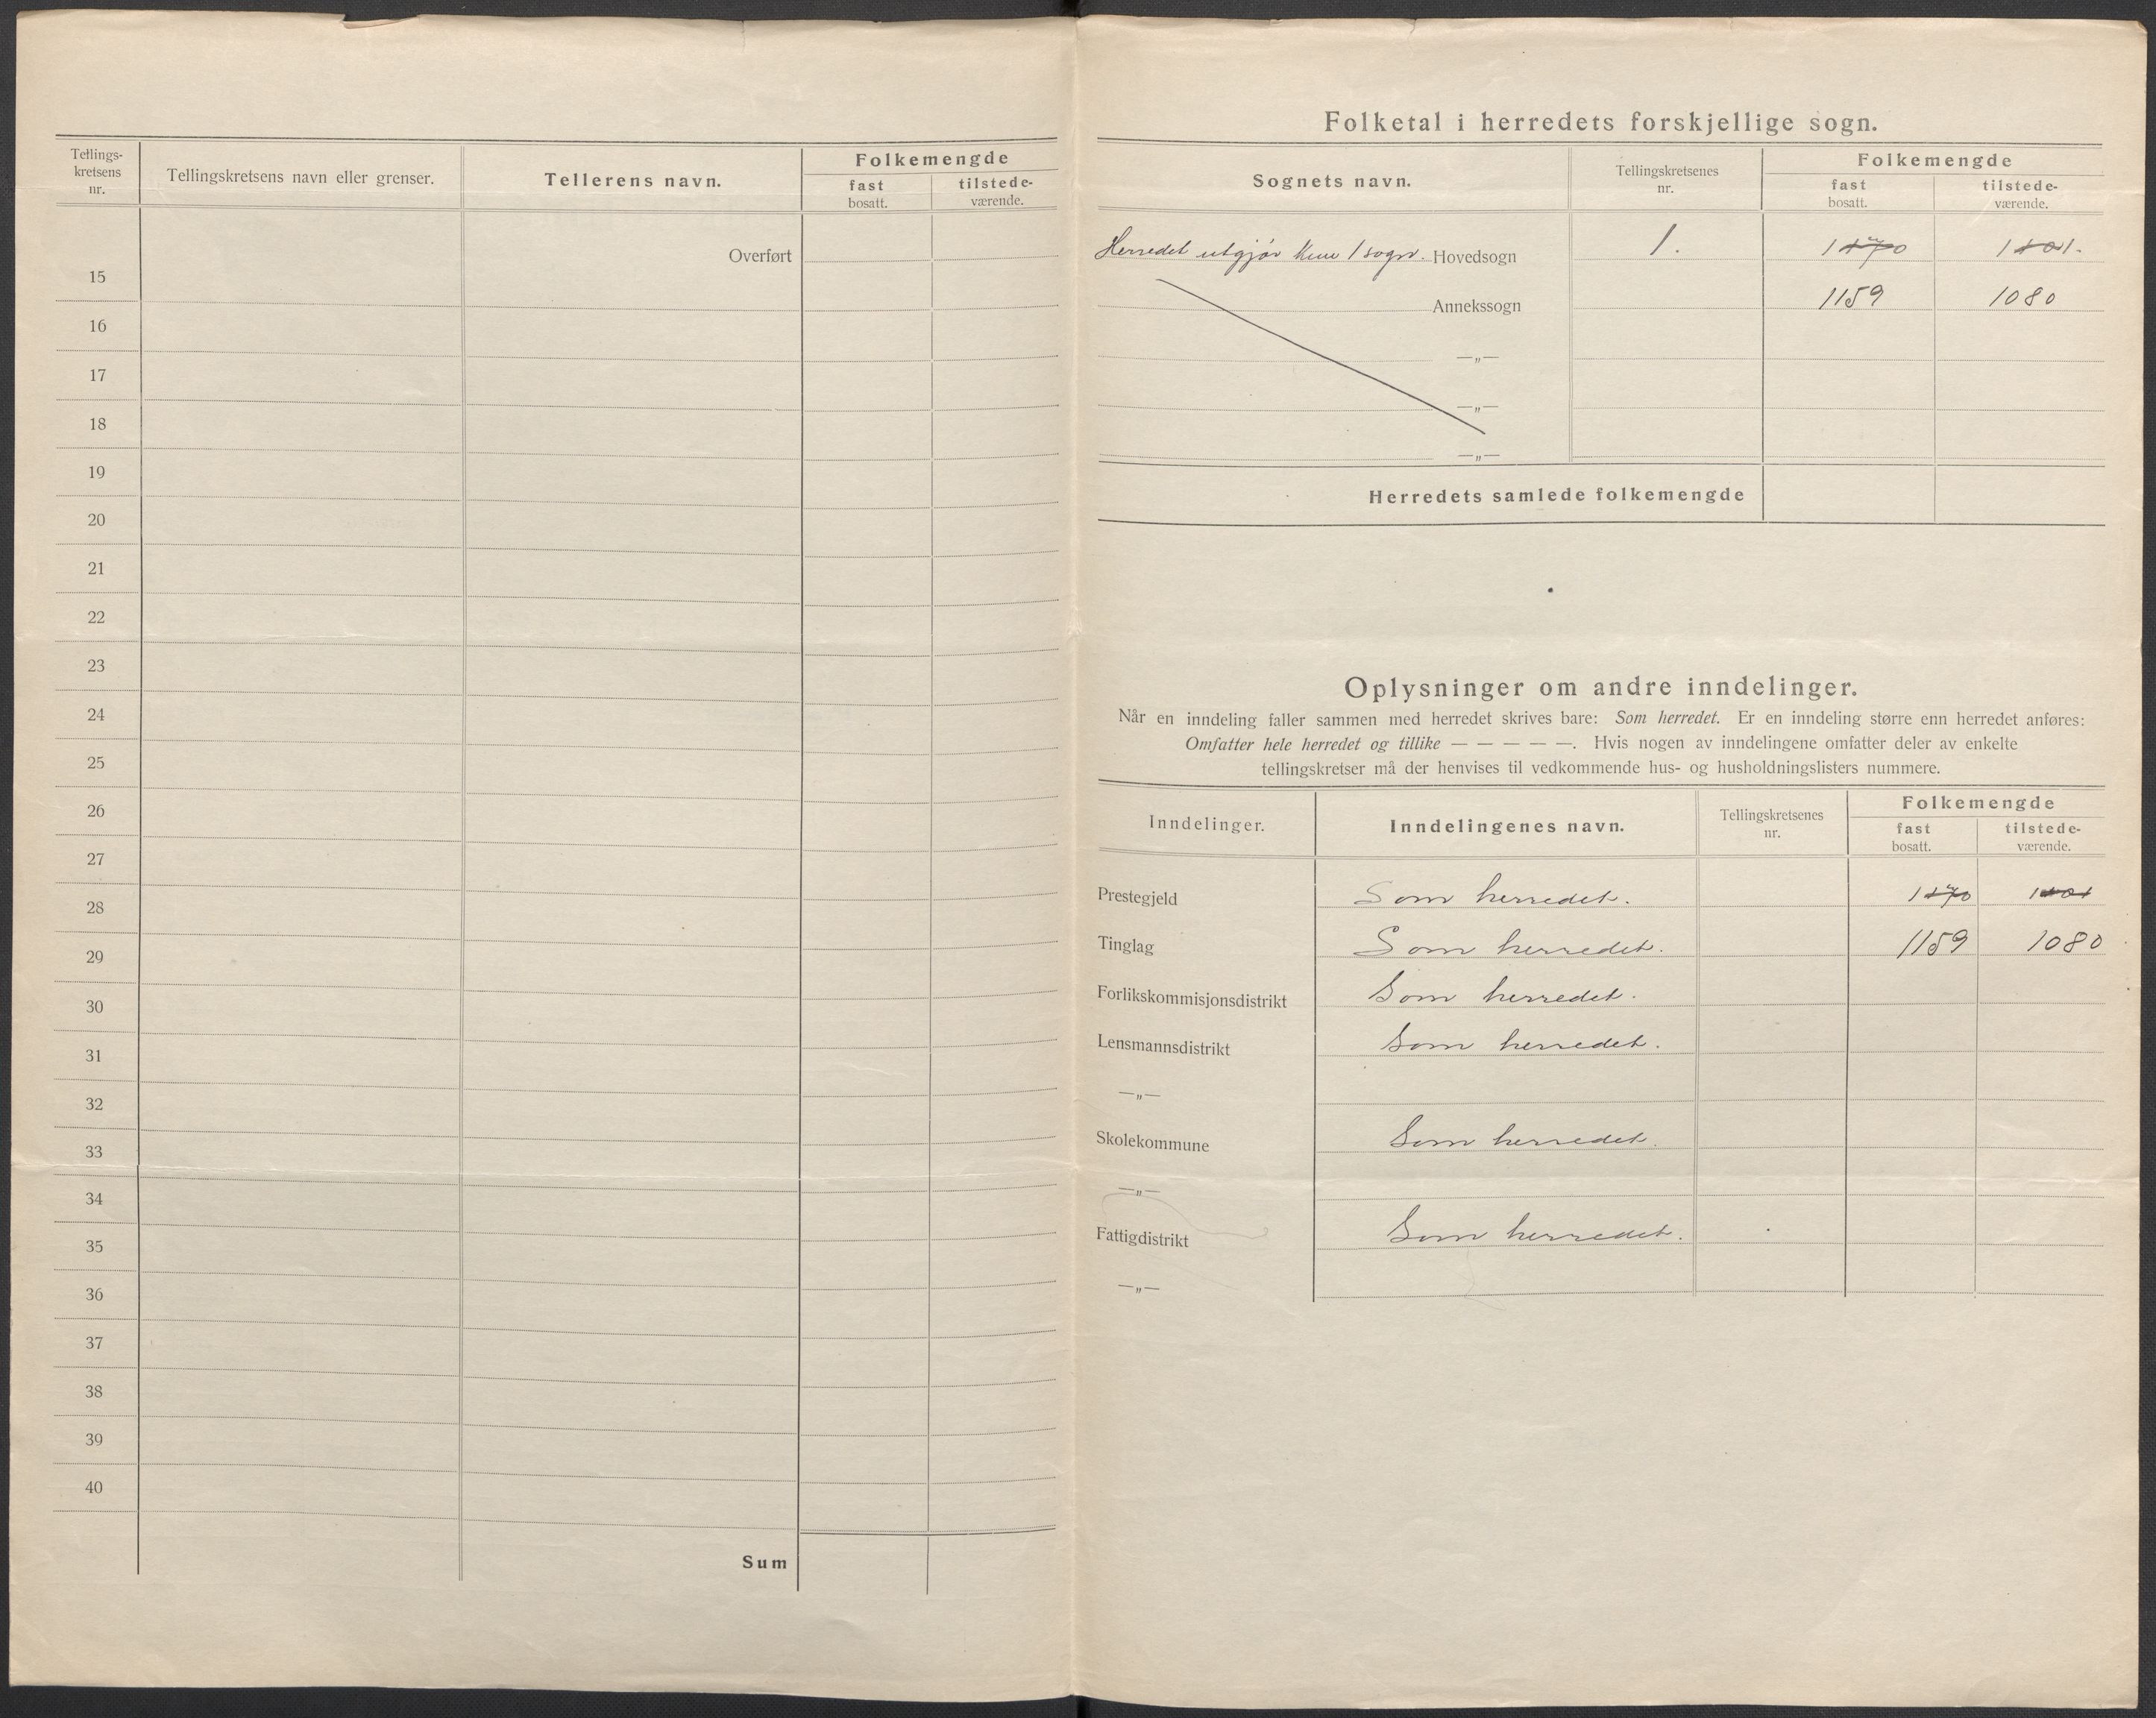 Tellings-
kretsens
nr.
Tellingskretsens navn eller grenser.
Tellerens navn.
Folkemengde
fast
bosatt.
tilstede-
værende.
Overført
15
16
17
18
19
20
21
22
23
24
25
26
27
28
29
30
31
32
33
34
35
36
37
38
39
40
Sum
Folketal i herredets forskjellige sogn.
Sognets navn.
Tellingskretsenes
nr.
Folkemengde
fast
bosatt.
tilstede-
værende.
Herredet utgjør kun 1 sogn. Hovedsogn 1.
Annekssogn 1159 1080
—„—
—„—
—„—
Herredets samlede folkemengde
Oplysninger om andre inndelinger.
Når en inndeling faller sammen med herredet skrives bare: Som herredet. Er en inndeling større enn herredet anføres:
Omfatter hele herredet og tillike — — — — —. Hvis nogen av inndelingene omfatter deler av enkelte
tellingskretser må der henvises til vedkommende hus- og husholdningslisters nummere.
Inndelinger.
Inndelingenes navn.
Tellingskretsenes
nr.
Folkemengde
fast
bosatt.
tilstede-
værende.
Prestegjeld Som herredet.
Tinglag Som herredet. 1159 1080
Forlikskommisjonsdistrikt Som herredet.
Lensmannsdistrikt Som herredet.
—„—
Skolekommune Som herredet.
—„—
Fattigdistrikt Som herredet.
—„—